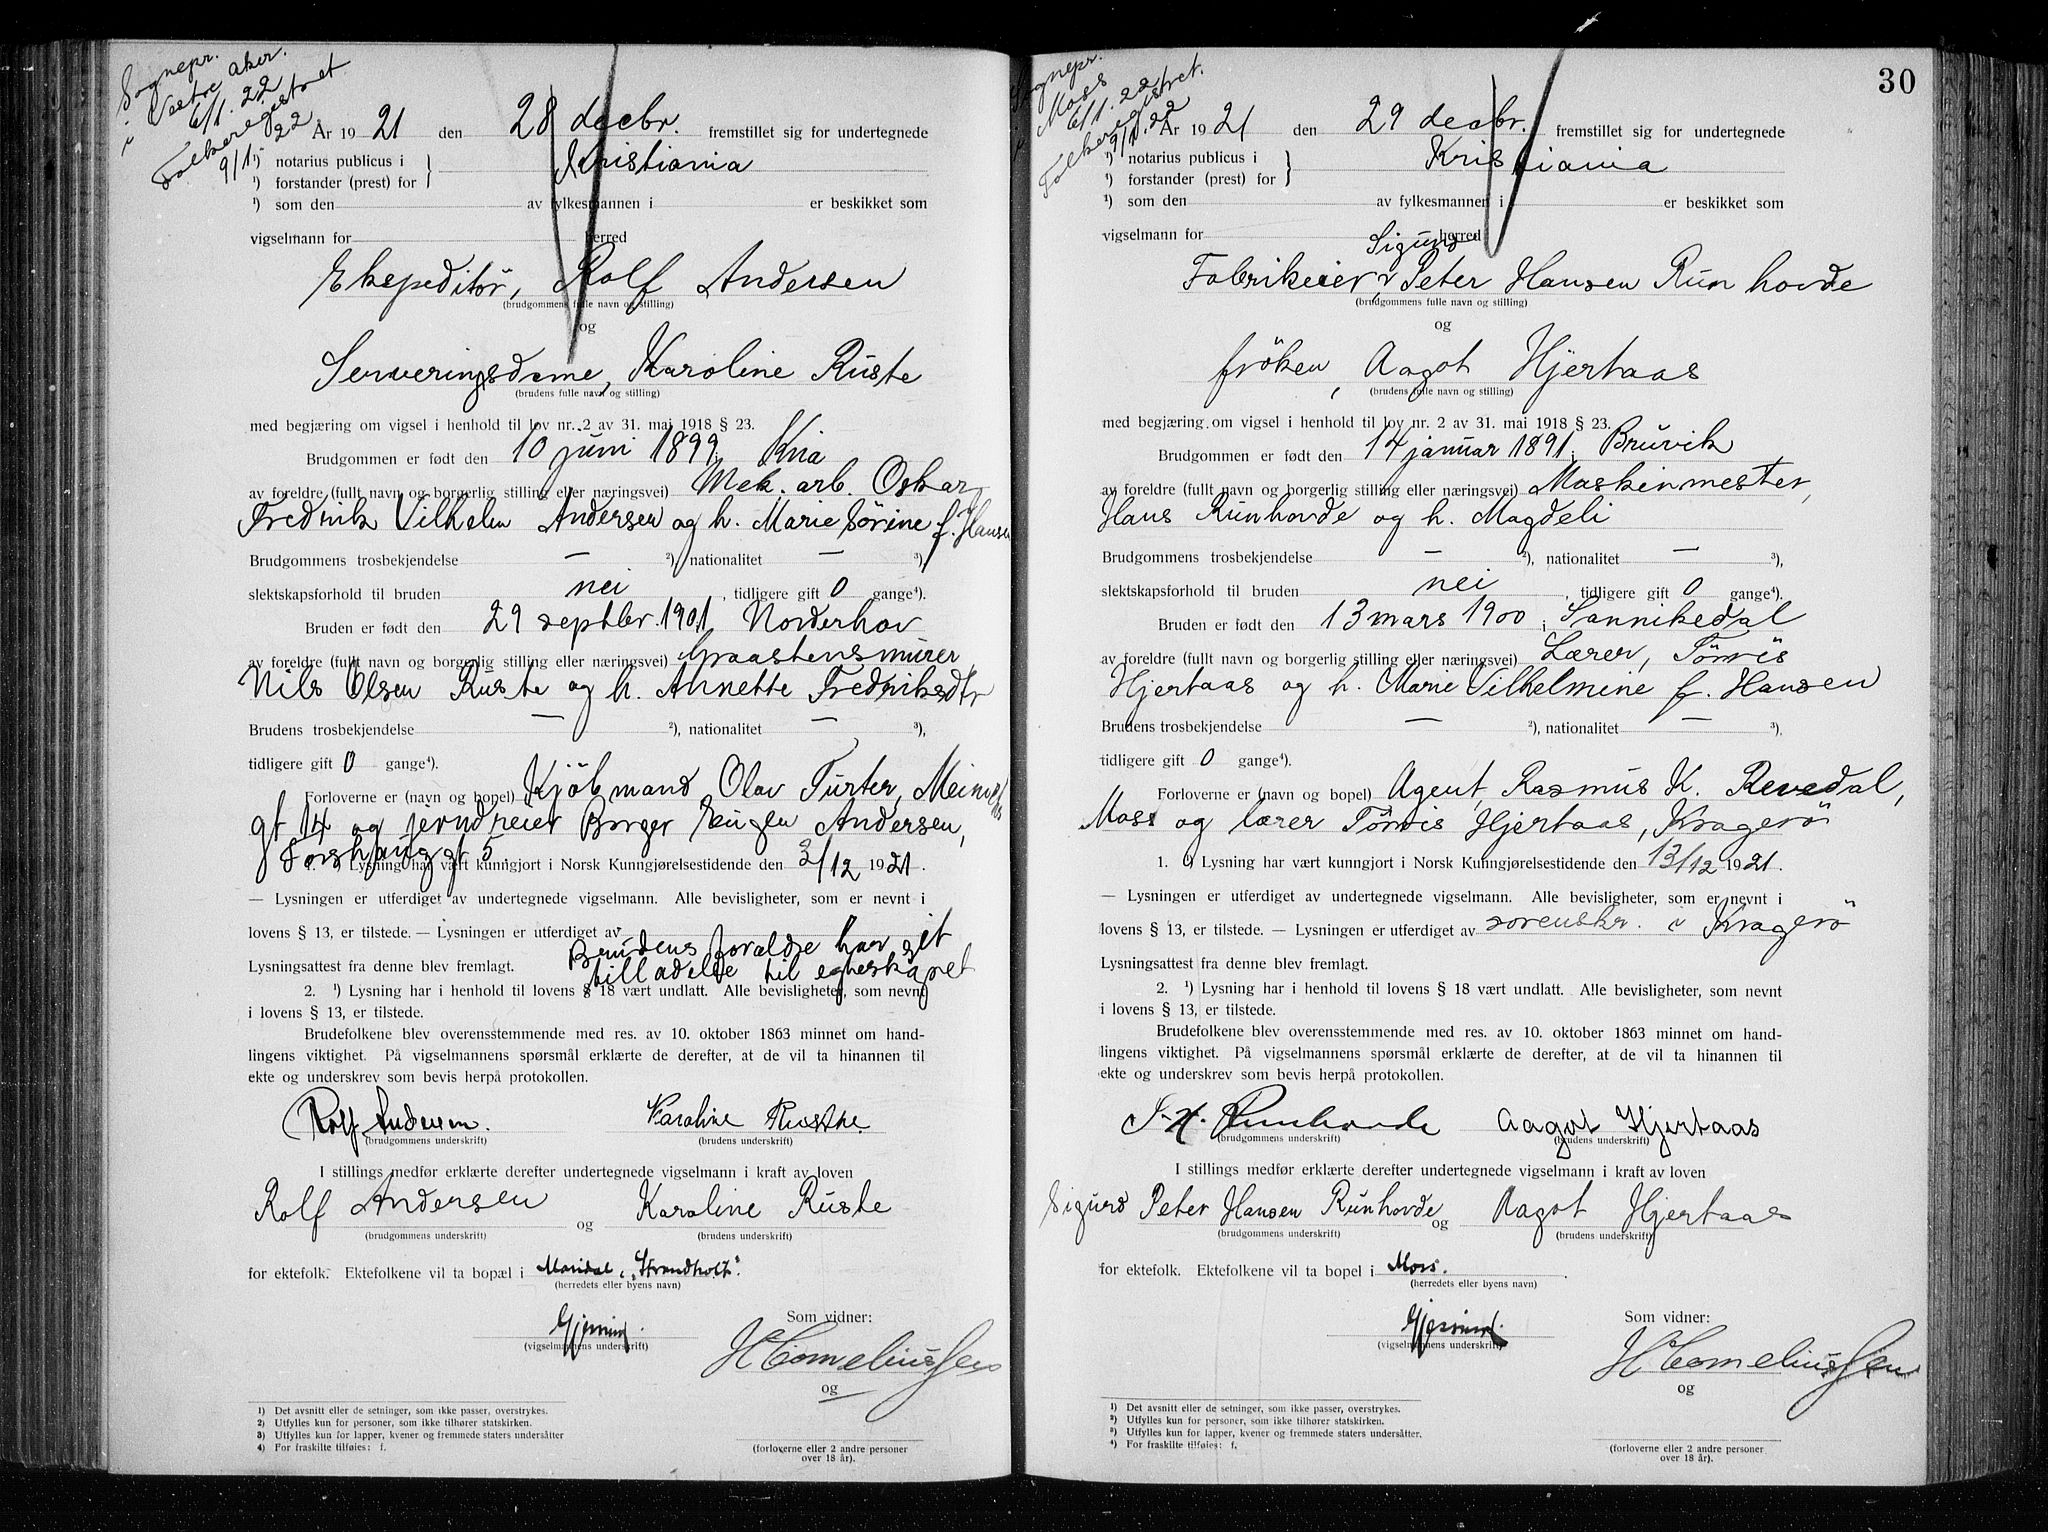 Sognepr.
i Vestre Aker.
6/1. 22
Folkeregistret
9/1. 22
År 1921 den 28 decbr. fremstillet sig for undertegnede
¹) notarius publicus i } Kristiania
¹) forstander (prest) for
¹) som den av fylkesmannen i er beskikket som
vigselmann for herred
Ekspeditör, Rolf Andersen
(brudgommens fulle navn og stilling)
og
Serveringsdame, Karoline Ruste
(brudens fulle navn og stilling)
med begjæring om vigsel i henhold til lov nr. 2 av 31. mai 1918 § 23.
Brudgommen er født den 10 juni 1899, Kria
av foreldre (fullt navn og borgerlig stilling eller næringsvei) Mek. arb. Oskar
Fredrik Vilhelm Andersen og h. Marie Sörine f. Hansen
Brudgommens trosbekjendelse — ²), nationalitet — ³),
slektskapsforhold til bruden nei , tidligere gift 0 gange⁴).
Bruden er født den 29 septbr. 1901, Norderhov
av foreldre (fullt navn og borgerlig stilling eller næringsvei) Graastensmurer
Nils Olsen Ruste og h. Annette Fredriksdtr
Brudens trosbekjendelse — ²), nationalitet — ³),
tidligere gift 0 gange⁴).
Forloverne er (navn og bopel) Kjöbmand Olav Furter,
gt 14 og Borger Eugen Andersen,
gt 5
1. ¹) Lysning har vært kunngjort i Norsk Kunngjørelsestidende den 3/12 1921.
— Lysningen er utferdiget av undertegnede vigselmann. Alle bevisligheter, som er nevnt i
lovens § 13, er tilstede. — Lysningen er utferdiget av
Brudens foreldre har git
Lysningsattest fra denne blev fremlagt. tilladelse til egteskapet
2. ¹) Lysning har i henhold til lovens § 18 vært undlatt. Alle bevisligheter, som nevnt
i lovens § 13, er tilstede.
Brudefolkene blev overensstemmende med res. av 10. oktober 1863 minnet om hand-
lingens viktighet. På vigselmannens spørsmål erklærte de derefter, at de vil ta hinannen til
ekte og underskrev som bevis herpå protokollen.
Rolf Andersen. Karoline Rustne
(brudgommens underskrift) (brudens underskrift)
I stillings medfør erklærte derefter undertegnede vigselmann i kraft av loven
Rolf Andersen og Karoline Ruste
(brudgommens underskrift) (brudens underskrift)
for ektefolk. Ektefolkene vil ta bopæl i Maridal, "Strandholt".
(herredets eller byens navn)
Som vidner:
Gjersing.
(vigselmannens underskrift)
H Corneliussen
og
1) Det avsnitt eller de setninger, som ikke passer, overstrykes.
2) Utfylles kun for personer, som ikke tilhører statskirken.
3) Utfylles kun for lapper, kvener og fremmede staters undersåtter
4) For fraskilte tilføies: f.
(forloverne eller 2 andre personer
over 18 år).
30
Sognepr.
i Moss
6/1. 22
Folkeregistret.
9/1. 22
År 1921 den 29 decbr. fremstillet sig for undertegnede
¹) notarius publicus i } Kristiania
¹) forstander (prest) for
¹) som den av fylkesmannen i er beskikket som
vigselmann for herred
Sigurd
Fabrikeier, Peter Hansen Runhovde
(brudgommens fulle navn og stilling)
og
fröken, Aagot Hjertaas
(brudens fulle navn og stilling)
med begjæring om vigsel i henhold til lov nr. 2 av 31. mai 1918 § 23.
Brudgommen er født den 14 januar 1891, Bruvik
av foreldre (fullt navn og borgerlig stilling eller næringsvei) Maskinmester,
Hans Runhovde og h. Magdeli
Brudgommens trosbekjendelse — ²), nationalitet — ³),
slektskapsforhold til bruden nei , tidligere gift 0 gange⁴).
Bruden er født den 13 mars 1900, i Sannikedal
av foreldre (fullt navn og borgerlig stilling eller næringsvei) Lærer, Tönnis
Hjertaas og h. Marie Vilhelmine f. Hansen
Brudens trosbekjendelse — ²), nationalitet — ³),
tidligere gift 0 gange⁴).
Forloverne er (navn og bopel) Agent, Rasmus K. Revedal,
Moss og lærer Tönnis Hjertaas, Kragerö
1. ¹) Lysning har vært kunngjort i Norsk Kunngjørelsestidende den 13/12 1921.
— Lysningen er utferdiget av undertegnede vigselmann. Alle bevisligheter, som er nevnt i
lovens § 13, er tilstede. — Lysningen er utferdiget av sorenskr. i Kragerö
Lysningsattest fra denne blev fremlagt.
2. ¹) Lysning har i henhold til lovens § 18 vært undlatt. Alle bevisligheter, som nevnt
i lovens § 13, er tilstede.
Brudefolkene blev overensstemmende med res. av 10. oktober 1863 minnet om hand-
lingens viktighet. På vigselmannens spørsmål erklærte de derefter, at de vil ta hinannen til
ekte og underskrev som bevis herpå protokollen.
S. H. Runhovde Aagot Hjertaas
(brudgommens underskrift) (brudens underskrift)
I stillings medfør erklærte derefter undertegnede vigselmann i kraft av loven
Sigurd Peter Hansen Runhovde og Aagot Hjertaas
(brudgommens underskrift) (brudens underskrift)
for ektefolk. Ektefolkene vil ta bopel i Moss.
(herredets eller byens navn)
Som vidner:
Gjersing.
(vigselmannens underskrift)
H Corneliussen
og
¹) Det avsnitt eller de setninger, som ikke passer, overstrykes.
²) Utfylles kun for personer, som ikke tilhører statskirken.
³) Utfylles kun for lapper, kvener og fremmede staters undersåtter.
⁴) For fraskilte tilføies: f.
(forloverne eller 2 andre personer
over 18 år).